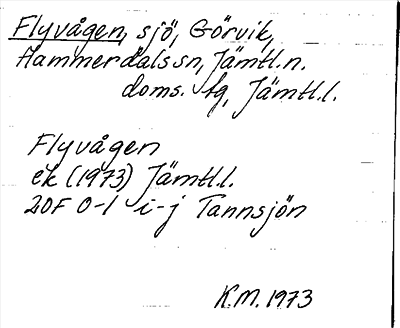 Flyvågen, sjö, Görvik,
Hammerdals sn, Jämtl.n.
doms. fg, Jämtl.l.
Flyvågen
ek (1973) Jämtl.l.
20F 0-1 i-j Tannsjön
K.M. 1973